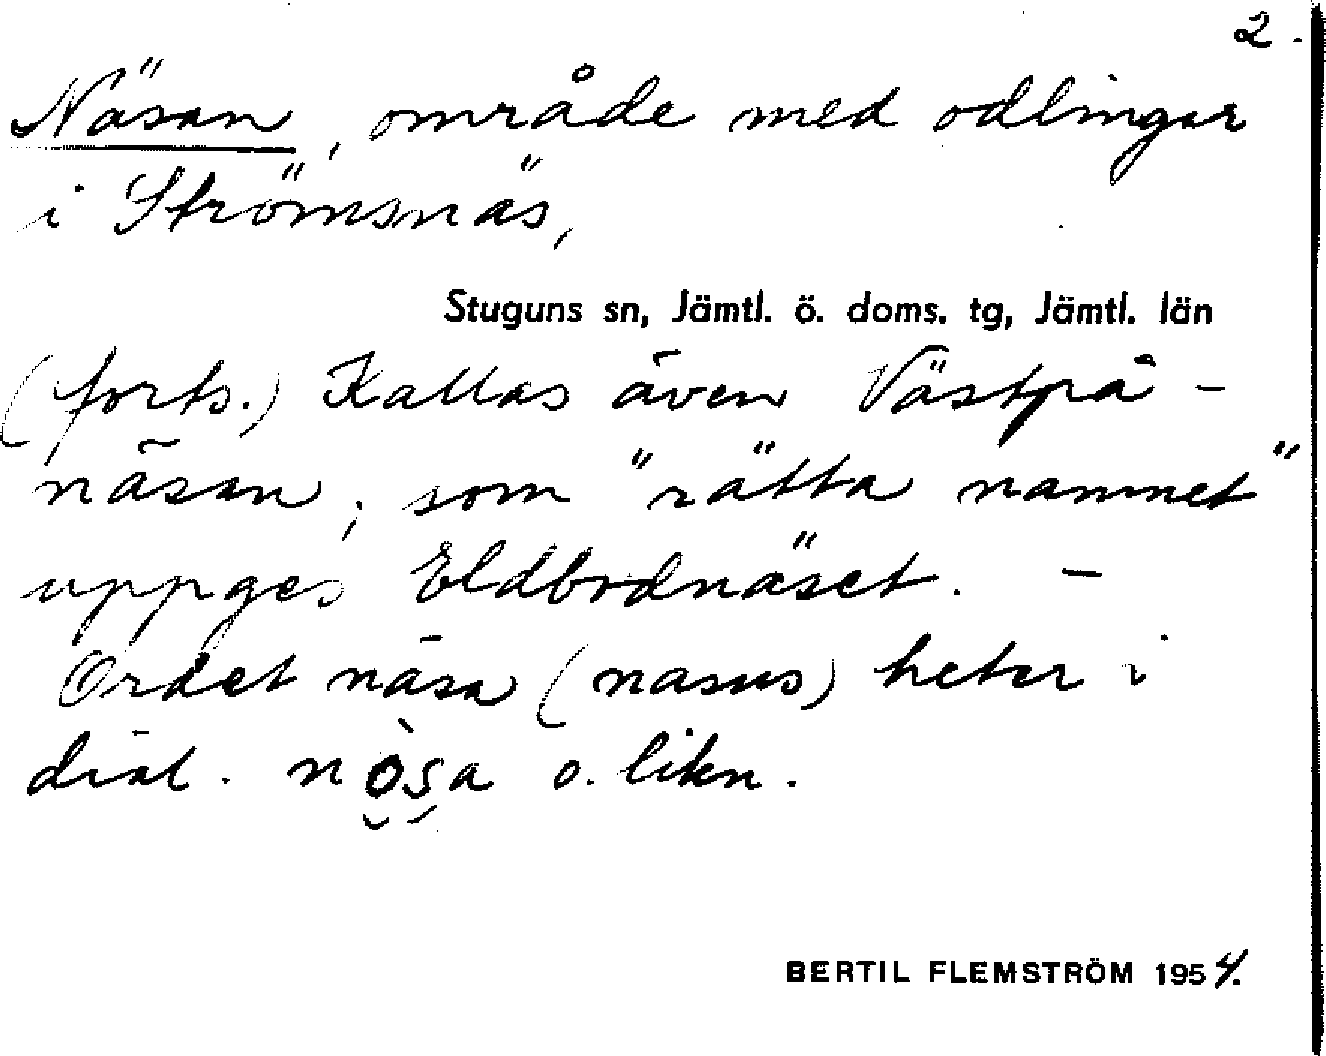 2.
Näsan, område med odlingar
i Strömsnäs,
Stuguns sn, Jämtl. ö. doms. tg, Jämtl. län
(forts.) Kallas även Västpå-
näsan; som "rätta namnet"
uppges Eldbrdnäset. –
Ordet näsa (nasus) heter i
dial. nò̮s̮a o. likn.
BERTIL FLEMSTRÖM 1954.